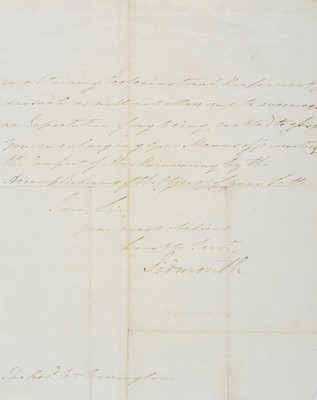 in obtaining Ecclesiastical Preferment,
are such as will not allow me to encourage
an Expectation of my being enabled to assist
you in enlarging your Means of promoting
the Comfort of the
Accomplishment of the Object of your Letter.
I am, Sir,
your most obedient
humble Servt,
Sidmouth
The Revd. Wm.